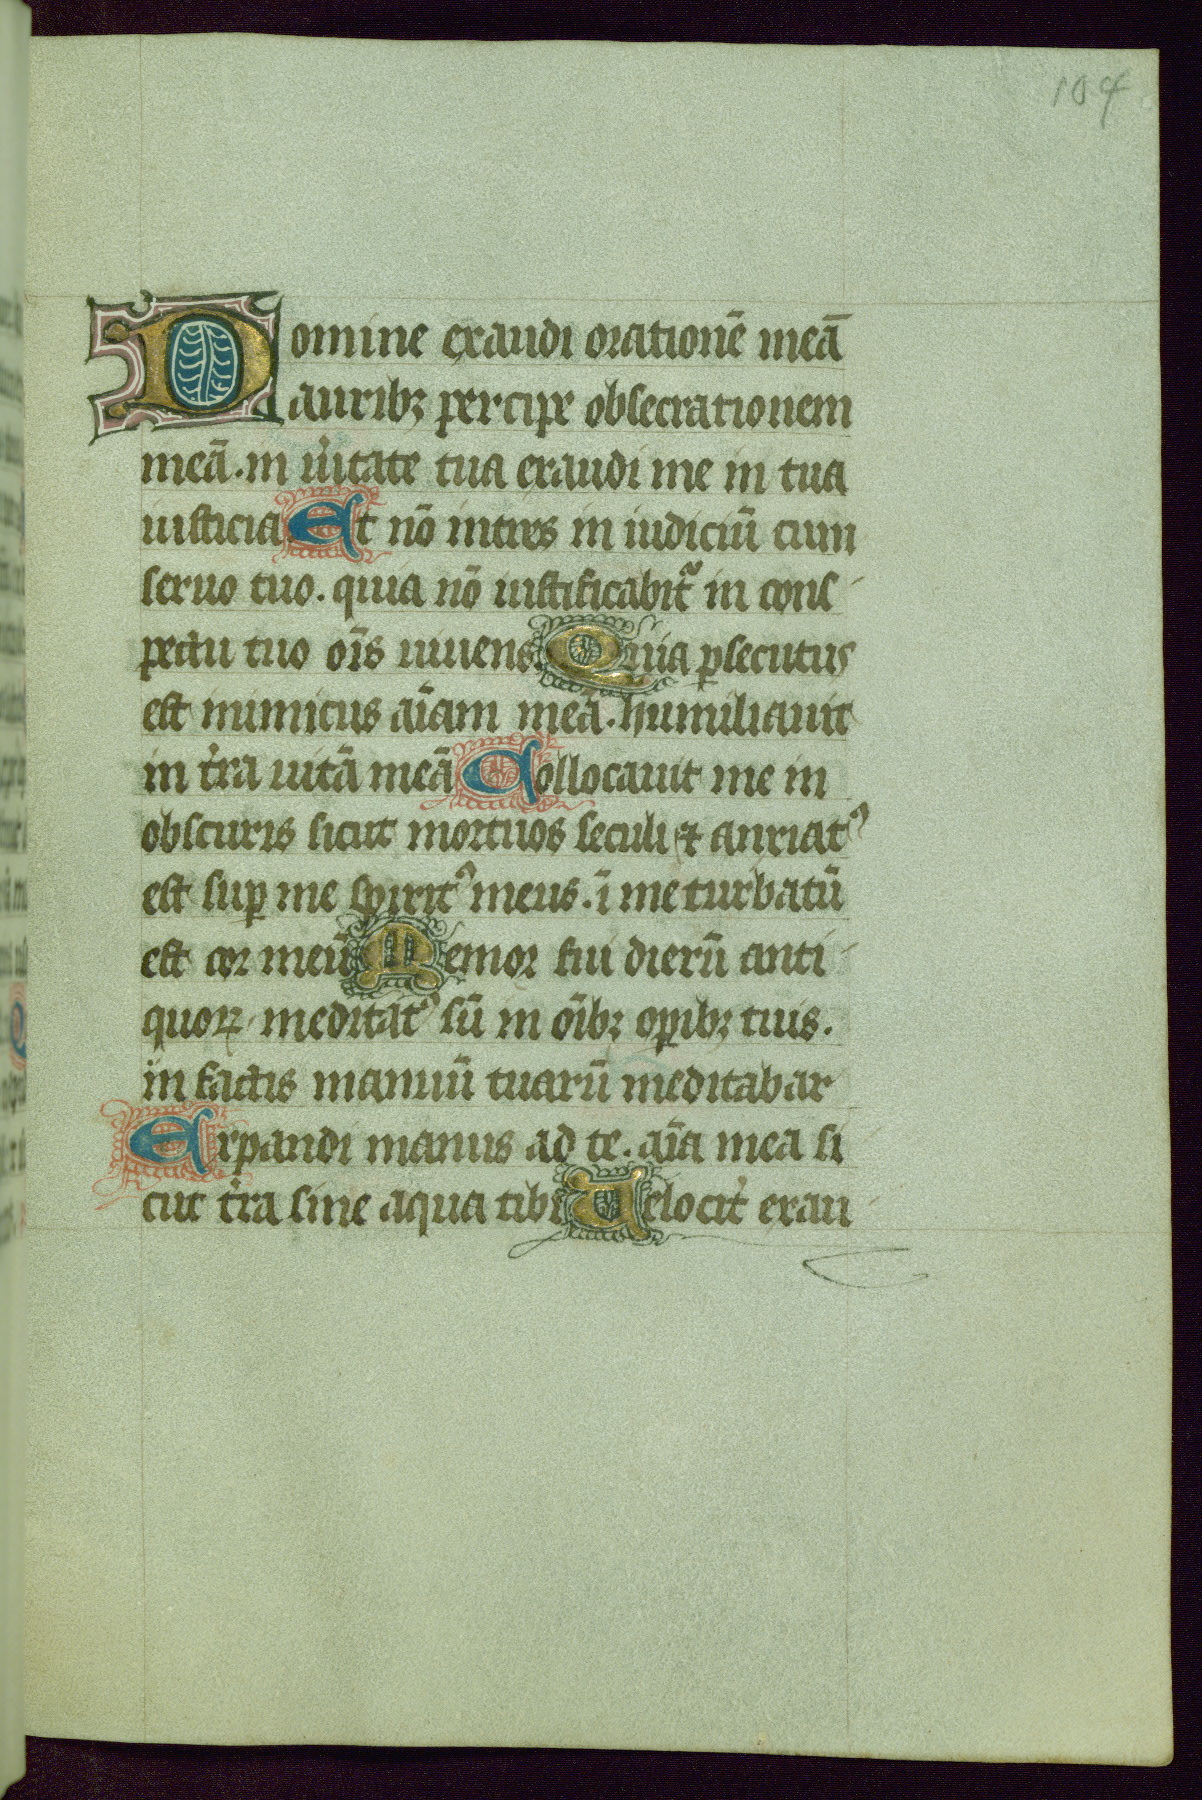 104
Domine exaudi orationē meā
auribꝫ percipe obsecrationem
meā. in ũitate tua exaudi me in tua
iusticia Et nō intres in iudiciū cum
seruo tuo. quia nō iustificabit᷑ in cons
pectu tuo oīs uiuens Quia ꝑsecutus
est inimicus aīam meā. humiliauit
in t̓ra uitā meā Collocauit me in
obscuris sicut mortuos seculi ⁊ anxiatꝰ
est suꝑ me spiritꝰ meus. ī me turbatū
est cor meū Memor fui dierū anti
quoꝝ meditatꝰ sū in oībꝫ oꝑibꝫ tuis.
in factis manuū tuarū meditabar
Expandi manus ad te. aīa mea si
cut t̓ra sine aqua tibi Uelocit̓ exau